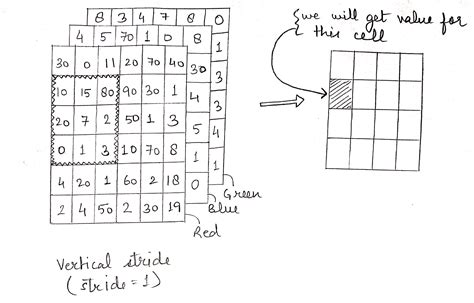 8 3 4 7 8 0
4 5 70 1 0 8 1
30 0 11 20 70 40 30 3
10 15 80 90 30 1 4 3
20 7 2 50 1 3 5 4
0 1 3 10 70 8 1 1
4 20 1 60 2 18 0
2 4 50 2 30 19
Green
Blue
Red
we will get value for
this cell
Vertical stride
(stride = 1)